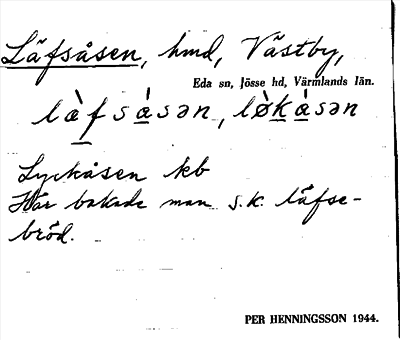 Läfsåsen, hmd, Västby,
Eda sn, Jösse hd, Värmlands län.
læ̀fsàsən, lø̀kàsən
Lyckåsen kb
Här bakade man s.k. läfse-
bröd.
PER HENNINGSSON 1944.